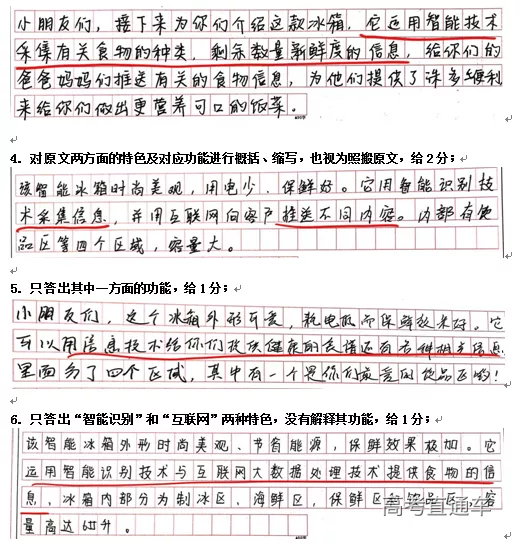 小朋友们，接下来为你们介绍这款冰箱，它运用智能技术
采集有关食物的种类，剩余数量新鲜度的信息，给你们的
爸爸妈妈们推送有关的食物信息，为他们提供了许多便利
来给你们做出更营养可口的饭菜。
4．对原文两方面的特色及对应功能进行概括、缩写，也视为照搬原文，给2分；
该智能冰箱时尚美观，用电少，保鲜好。它用智能识别技
术采集信息，并用互联网向客户推送不同内容。内部有饮
品区等四个区域，容量大。
5．只答出其中一方面的功能，给1分；
小朋友们，这个冰箱外形可爱，耗电低而保鲜效果好。它
可以用信息技术给你们提供健康的
里面分了四个区域，其中有一个是你们最爱的饮品区哟！
6．只答出“智能识别”和“互联网”两种特色，没有解释其功能，给1分；
该智能冰箱外形时尚美观、节省能源，保鲜效果极加。它
运用智能识别技术与互联网大数据处理技术提供食物的信
息，冰箱内部分为制冰区、海鲜区，保鲜区、饮品区，容
量高达611升。
高考直通车